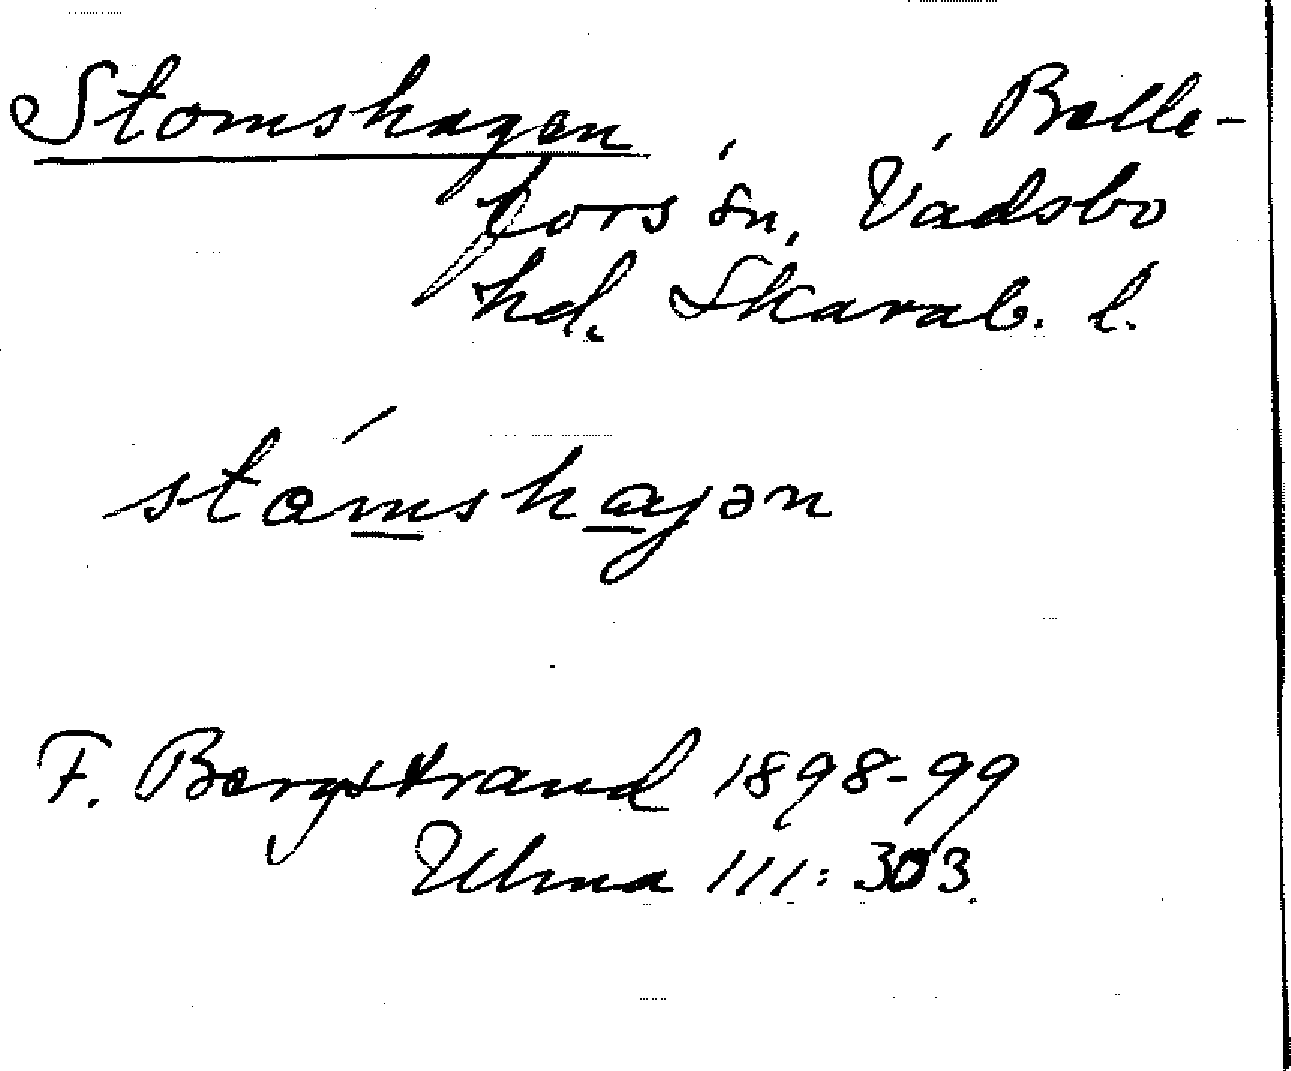 Stomshagen , , Belle-
fors sn, Vadsbo
hd. Skarab. l.
stɷ́mshagən
F. Bergstrand 1898-99
Ulma 111:303.